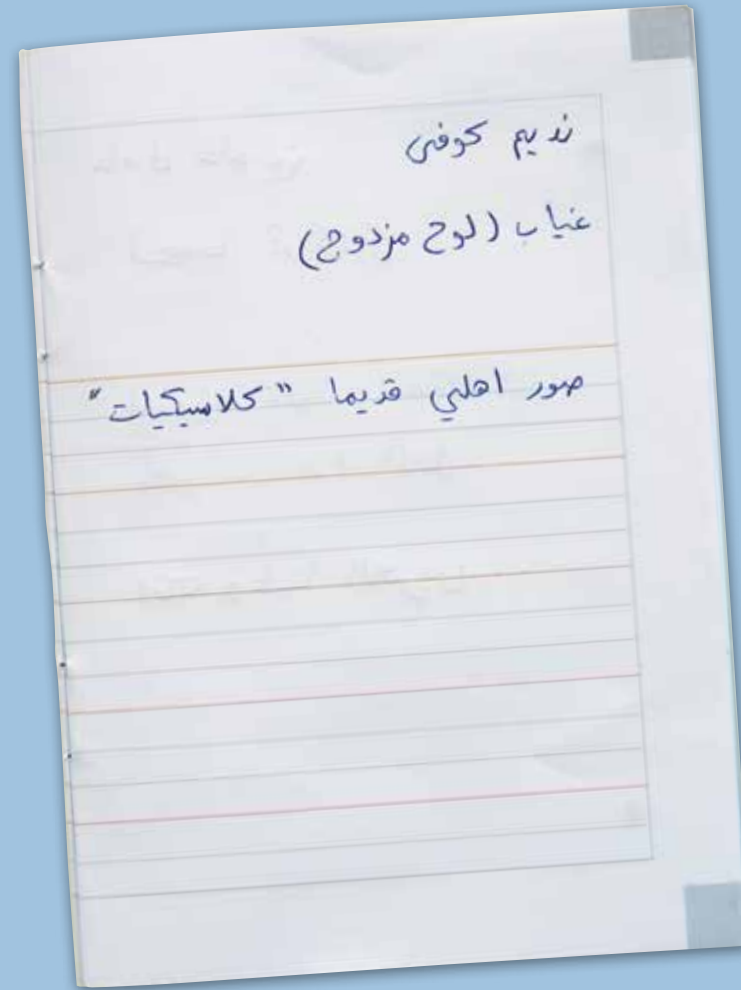 نديم كوفي
غياب (لوح مزدوج)
صور اهلي قديما "كلاسيكيات"